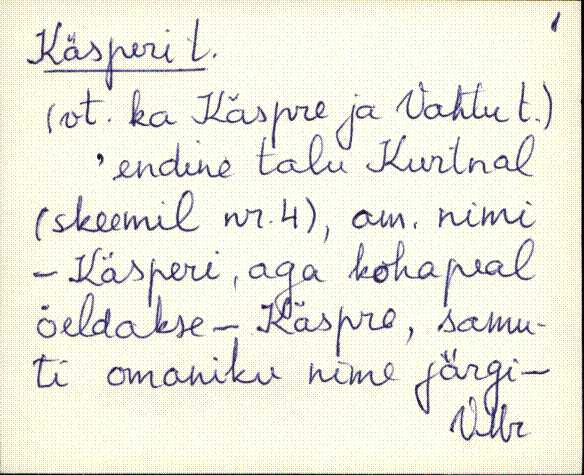 Käsperi t.
(vt. ka Käspre ja Vahtu t.)
'endine talu Kurtnal
(skeemil nr. 4), am. nimi
– Käsperi, aga kohapeal
öeldakse – Käspre, samu-
ti omaniku nime järgi –